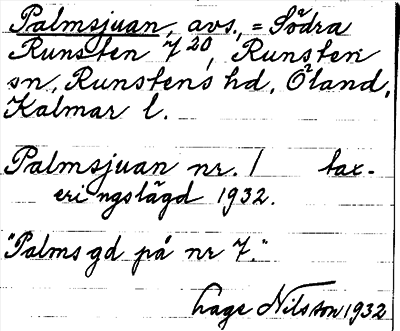 Palmsjuan, avs., = Södra
Runsten 7²⁰, Runstens
sn, Runstens hd, Öland,
Kalmar l.
Palmsjuan nr. 1 tax-
eringslägd 1932.
"Palms gd på nr 7."
Lage Nilsson 1932